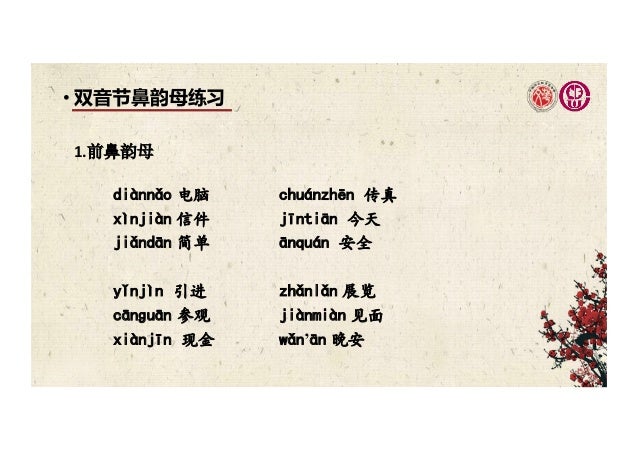 • 双音节鼻韵母练习
1.前鼻韵母
diànnǎo 电脑 chuánzhēn 传真
xìnjiàn 信件 jīntiān 今天
jiǎndān 简单 ānquán 安全
yǐnjìn 引进 zhǎnlǎn 展览
cānguān 参观 jiànmiàn 见面
xiànjīn 现金 wǎn’ān 晚安